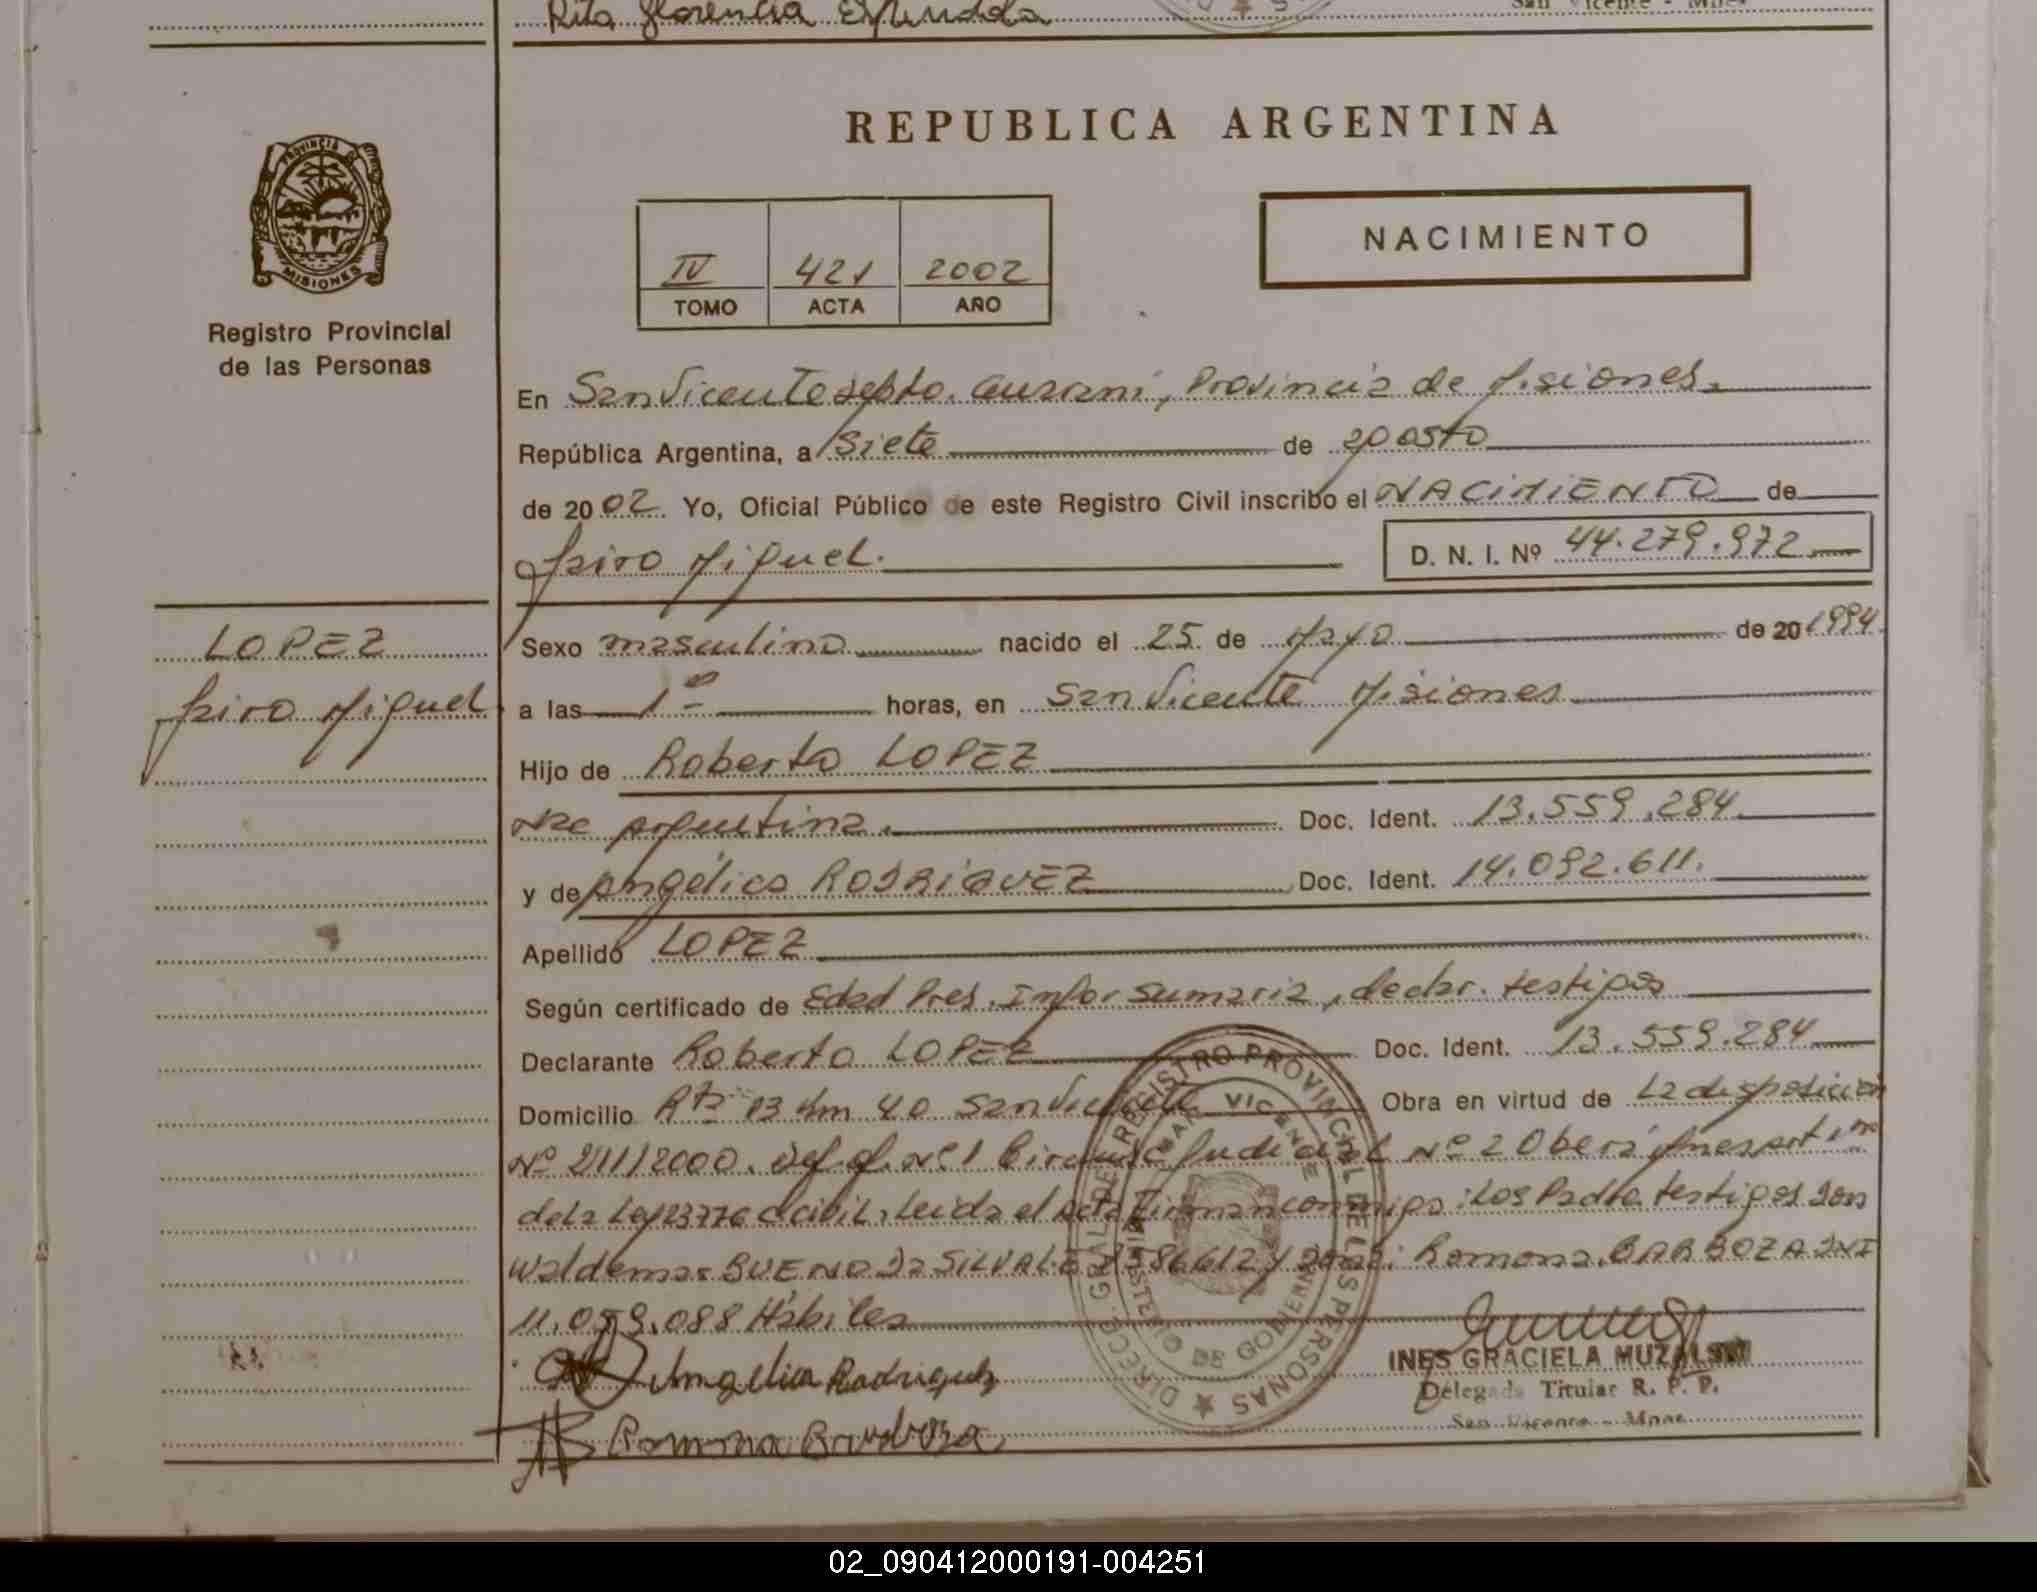 Rita Florencia Espindola
San Vicente - Mnes
PROVINCIA DE
MISIONES
Registro Provincial
de las Personas
LOPEZ
Jairo Miguel
REPUBLICA ARGENTINA
NACIMIENTO
IV 421 2002
TOMO ACTA AÑO
En San Vicente depto. Guarani, Provincia de Misiones.
República Argentina, a siete de agosto
de 2002. Yo, Oficial Público de este Registro Civil inscribo el NACIMIENTO de
Jairo Miguel. D. N. I. Nº 44.279.972
Sexo masculino nacido el 25 de Mayo de 20 1994
a las 1º horas, en San Vicente Misiones
Hijo de Roberto LOPEZ
Nac Argentina. Doc. Ident. 13.559.284
y de Angélica RODRIGUEZ Doc. Ident. 14.092.611.
Apellido LOPEZ
Según certificado de Edad Pres. Infor Sumaria, declar. testigos
Declarante Roberto LOPEZ Doc. Ident. 13.559.284
Domicilio Rta 13 km 40 San Vicente Obra en virtud de La disposición
Nº 211/2000. Def. of. Nº 1 Judicial Nº 2 Oberá Mnes art
de la Ley 23776 C civil, Leida el Acta Firman conmigo: Los Padres testigos Don
Waldemar BUENO DA SILVA L.E 8586612 y Doña: Ramona BARBOZA DNI
11.059.088 Hábiles
Angelica Rodriguez
Ramona Barboza
DIRECC. GRAL DE REGISTRO PROVINCIAL DE LAS PERSONAS
SAN VICENTE
MINISTERIO DE GOBIERNO
INES GRACIELA MUZALSKI
Delegada Titular R. P. P.
San Vicente - Mnes
02_090412000191-004251